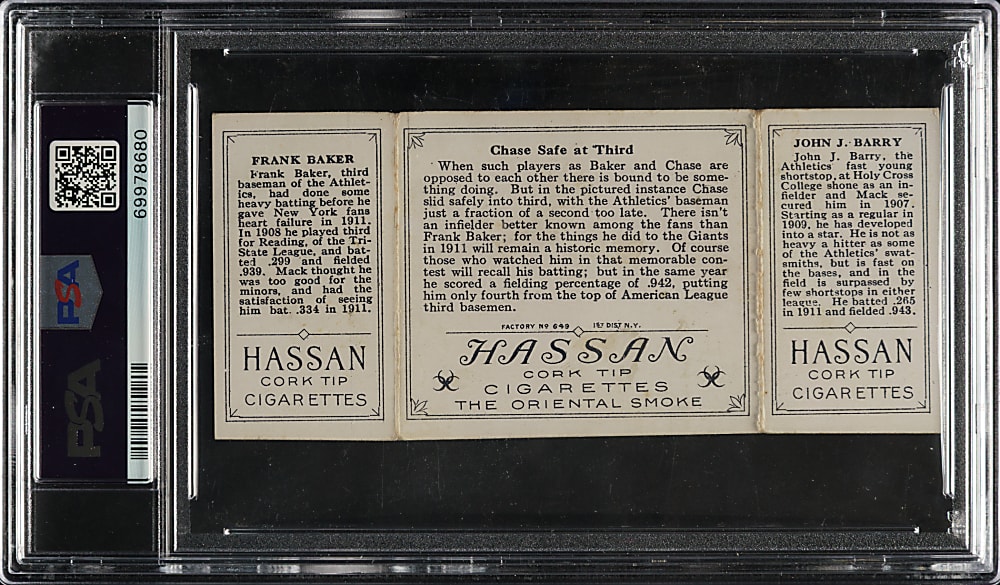 PSA
69978680
PSA
FRANK BAKER
Frank Baker, third
baseman of the Athlet-
ics, had done some
heavy batting before he
gave New York fans
heart failure in 1911.
In 1908 he played third
for Reading, of the Tri-
State League, and bat-
ted .299 and fielded
.939. Mack thought he
was too good for the
minors, and had the
satisfaction of seeing
him bat. .334 in 1911.
HASSAN
CORK TIP
CIGARETTES
Chase Safe at Third
When such players as Baker and Chase are
opposed to each other there is bound to be some-
thing doing. But in the pictured instance Chase
slid safely into third, with the Athletics' baseman
just a fraction of a second too late. There isn't
an infielder better known among the fans than
Frank Baker; for the things he did to the Giants
in 1911 will remain a historic memory. Of course
those who watched him in that memorable con-
test will recall his batting; but in the same year
he scored a fielding percentage of .942, putting
him only fourth from the top of American League
third basemen.
FACTORY Nº 649 1ST DIST N.Y.
HASSAN
CORK TIP
CIGARETTES
THE ORIENTAL SMOKE
JOHN J. BARRY
John J. Barry, the
Athletics' fast young
shortstop, at Holy Cross
College shone as an in-
fielder and Mack se-
cured him in 1907.
Starting as a regular in
1909, he has developed
into a star. He is not as
heavy a hitter as some
of the Athletics' swat-
smiths, but is fast on
the bases, and in the
field is surpassed by
few shortstops in either
league. He batted .265
in 1911 and fielded .943.
HASSAN
CORK TIP
CIGARETTES